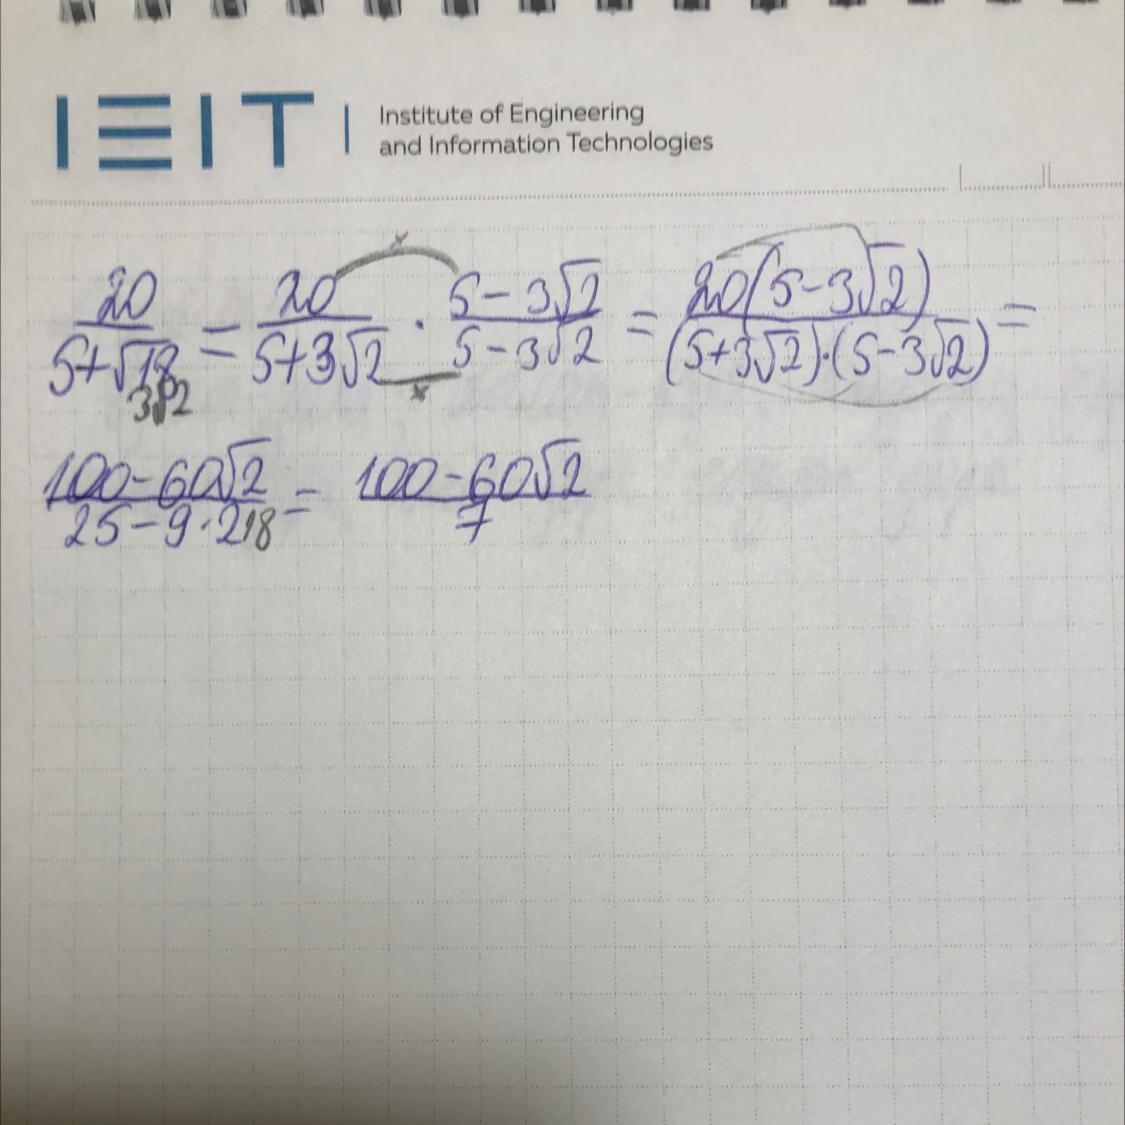 IEIT
Institute of Engineering
and Information Technologies
20/(5+√18) = 20/(5+3√2) · (5-3√2)/(5-3√2) = 20(5-3√2)/((5+3√2)·(5-3√2)) =
3√2
(100-60√2)/(25-9·2) 18 = (100-60√2)/7